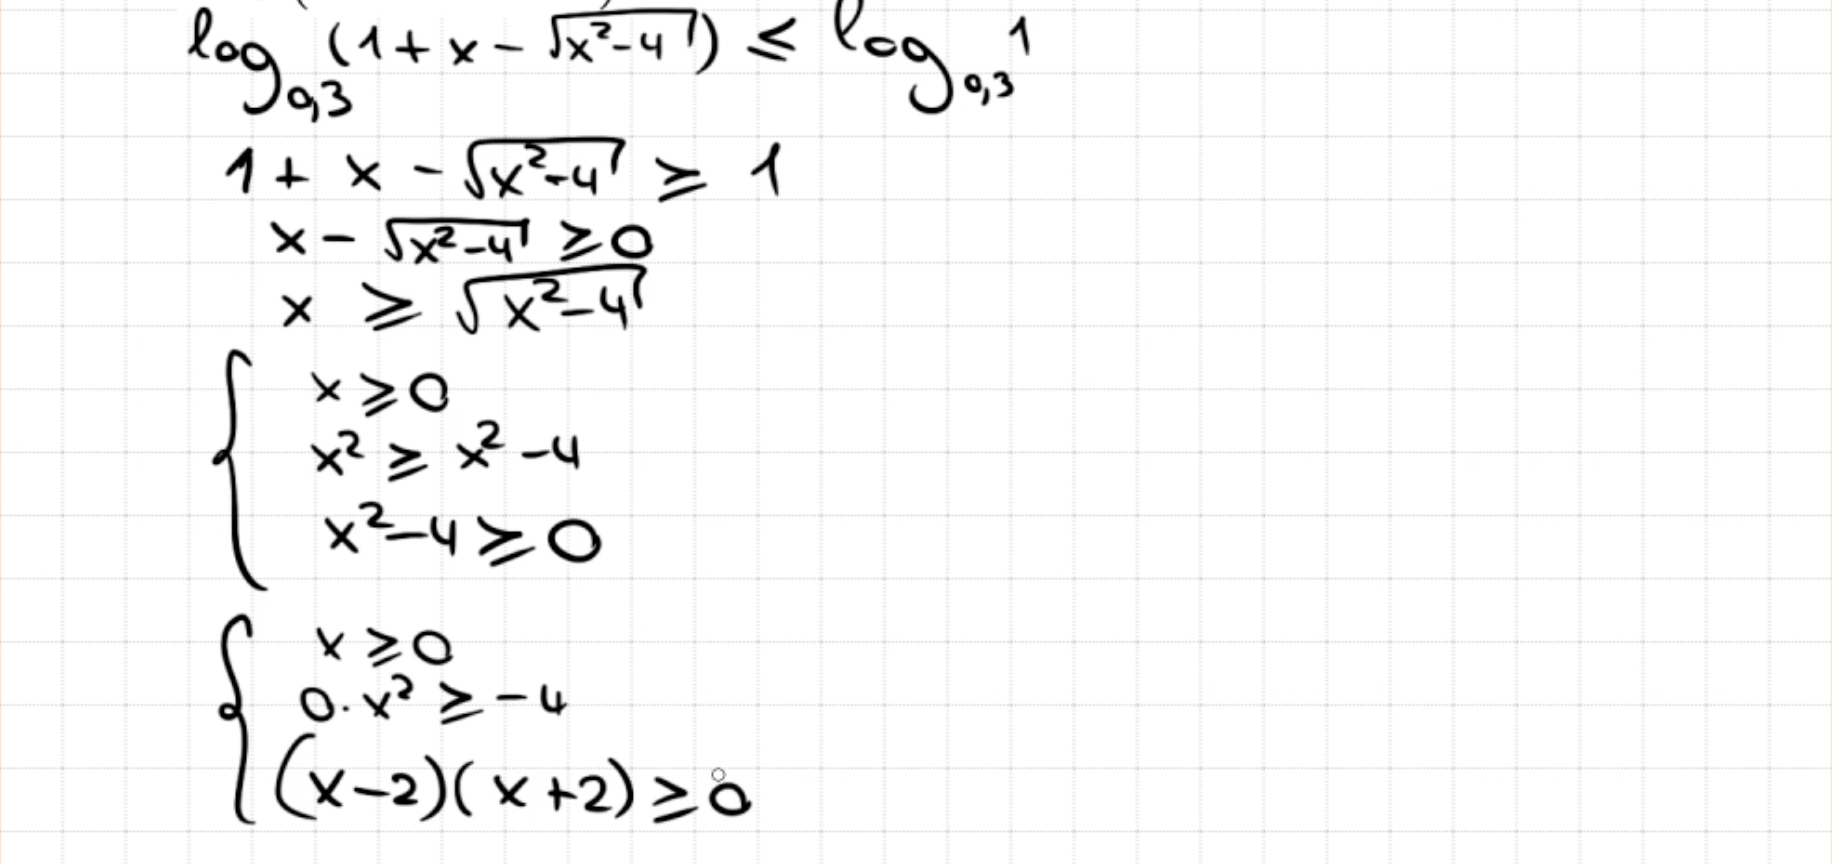 log₀,₃ (1 + x - √(x² - 4)) ≤ log₀,₃ 1
1 + x - √(x² - 4) ≥ 1
x - √(x² - 4) ≥ 0
x ≥ √(x² - 4)
{ x ≥ 0
x² ≥ x² - 4
x² - 4 ≥ 0
{ x ≥ 0
0 · x² ≥ - 4
(x - 2)(x + 2) ≥ 0